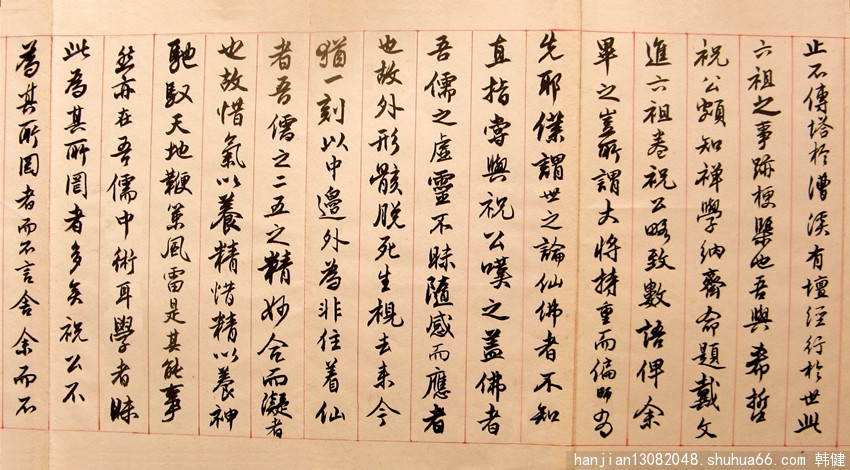 止不傳塔於漕溪有壇經行於世此
六祖之事跡梗槩也吾與希哲
祝公頗知禅學納齋俞題戴文
進六祖卷祝公略致數語俾余
畢之豈所謂大将持重而偏師為
先耶僕謂世之論仙佛者不知
直指嘗與祝公嘆之盖佛者
吾儒之虛靈不昧隨感而應者
也故外形骸脱死生視去来今
猶一刻以中邊外為非住着仙
者吾儒之二五之精妙合而凝者
也故惜氣以養精惜精以養神
馳馭天地鞭策風雷是其能事
然亦在吾儒中術耳學者昧
此為其所罔者多矣祝公不
為其所罔者而不言舍余而不
hanjian13082048.shuhua66.com 韩健